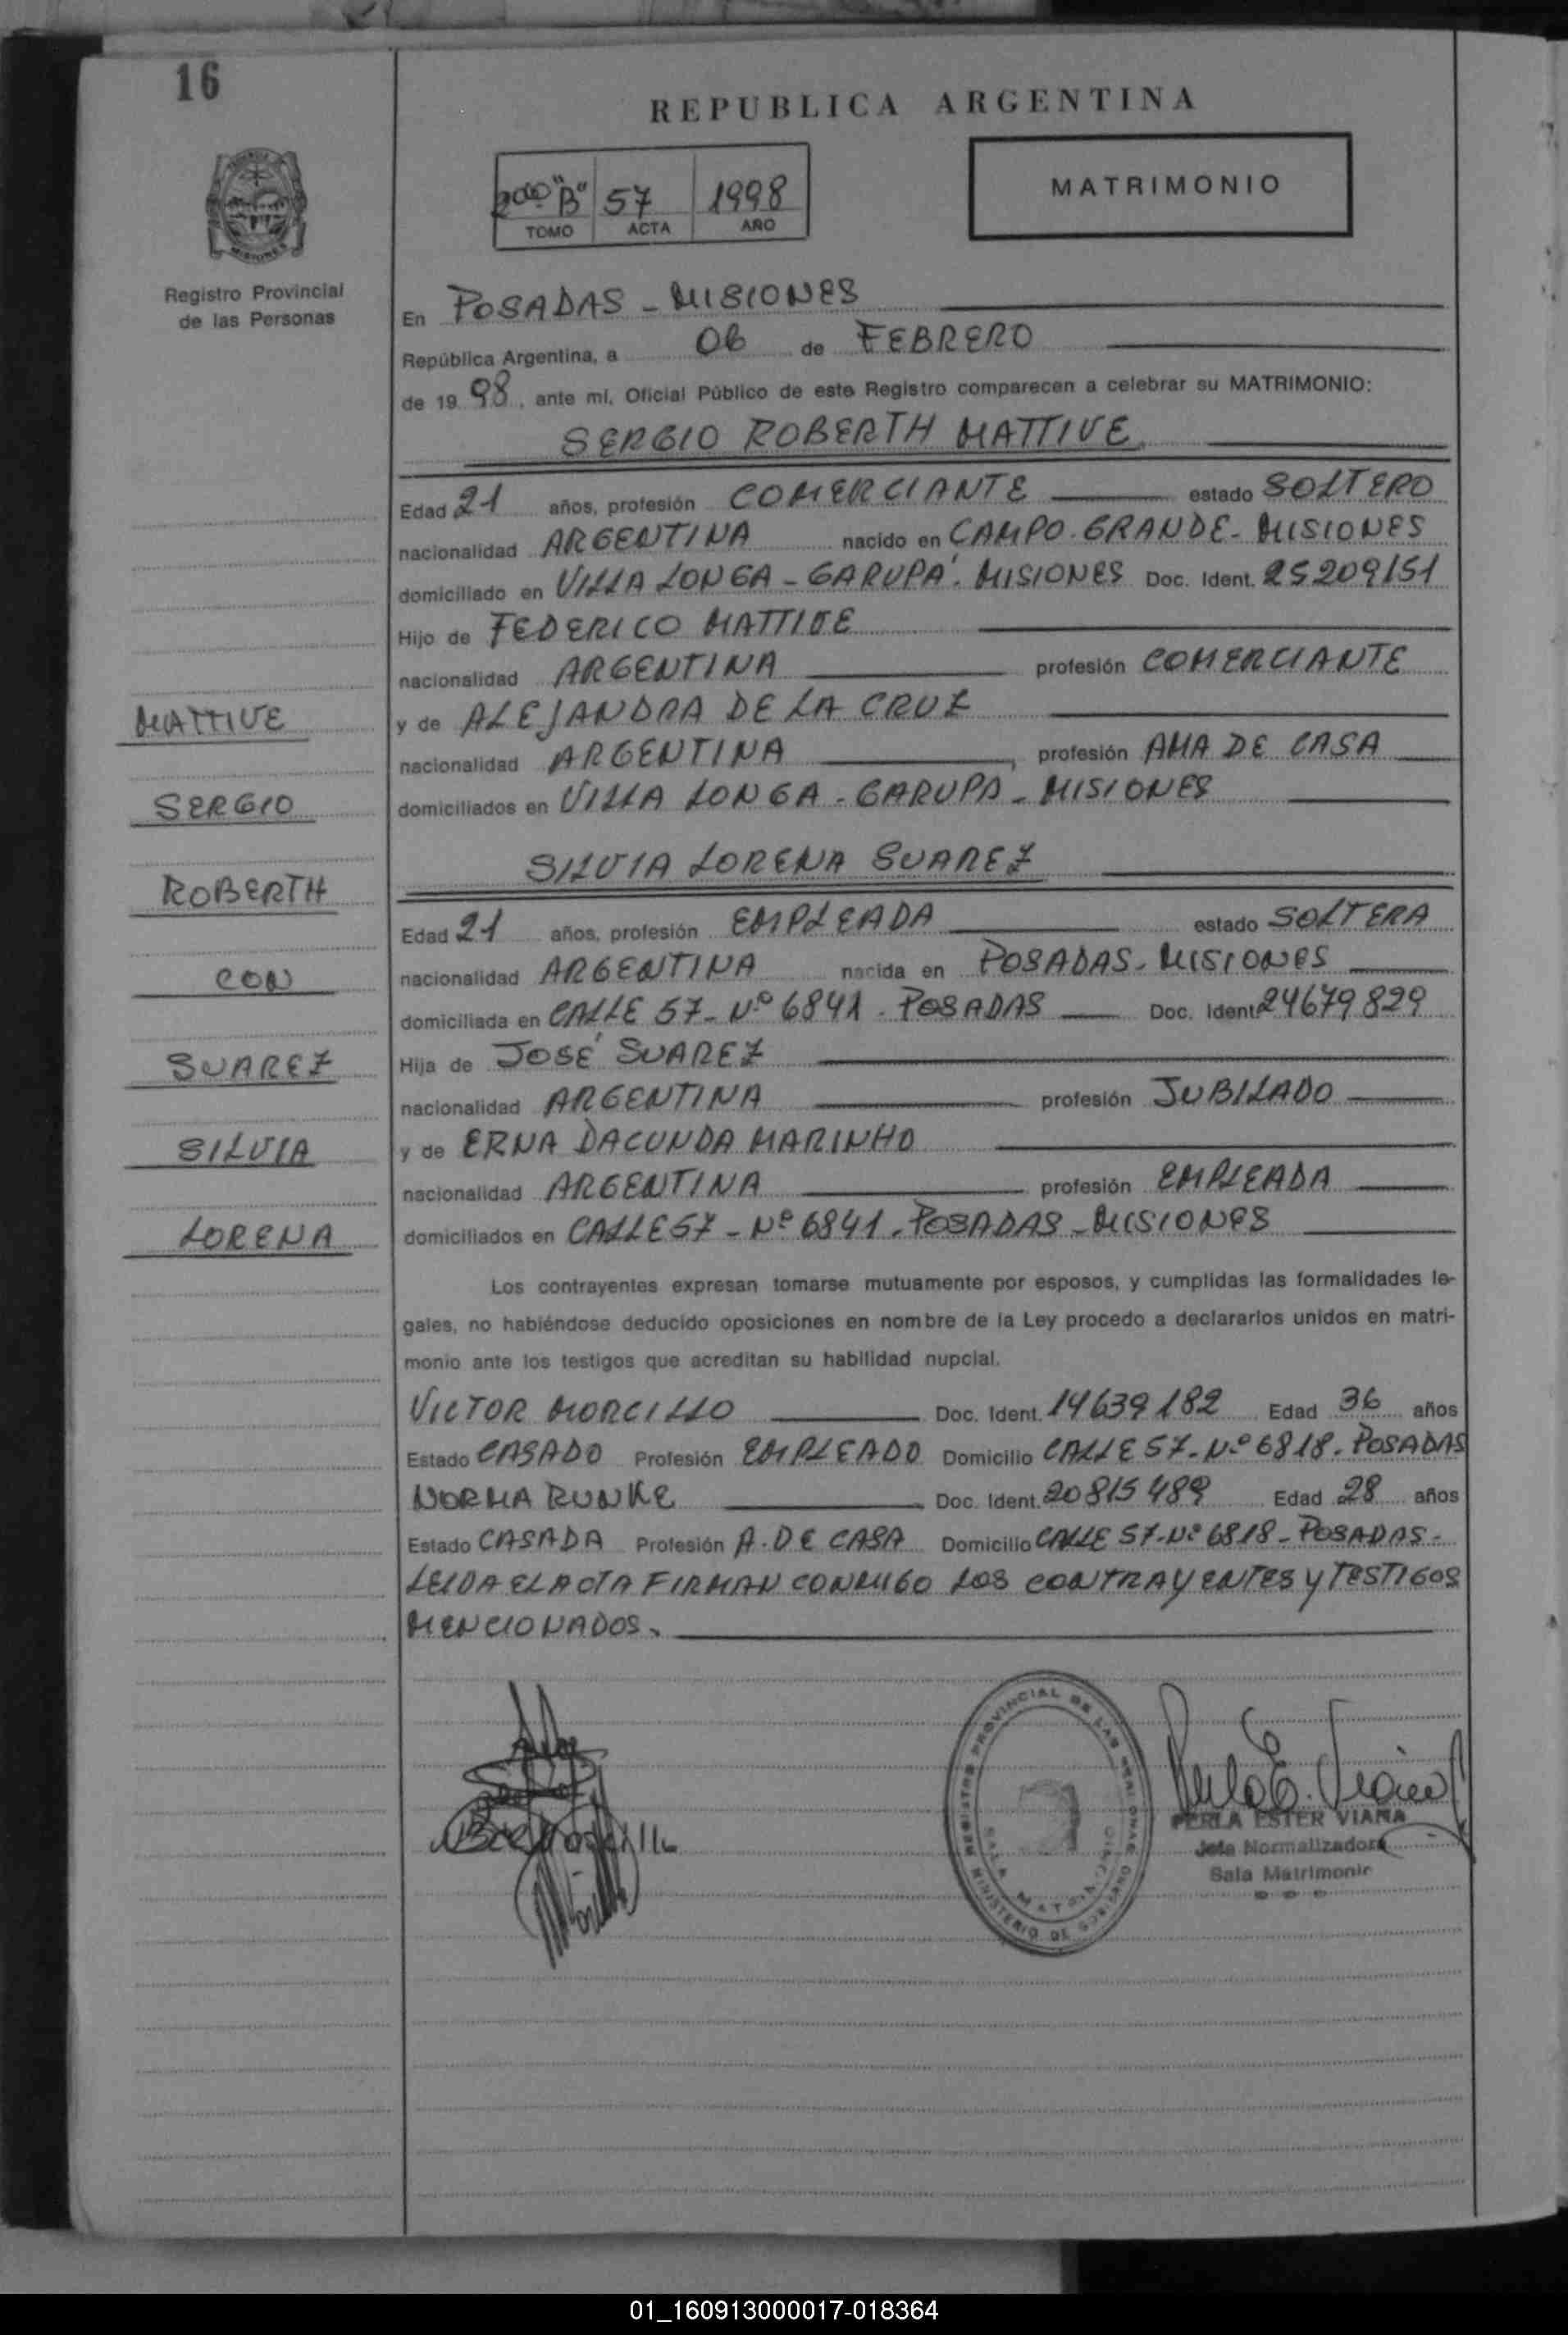 16
REPUBLICA ARGENTINA
2do "B" 57 1998
TOMO ACTA AÑO
MATRIMONIO
Registro Provincial
de las Personas
En POSADAS - MISIONES
República Argentina, a 06 de FEBRERO
de 19 98, ante mí, Oficial Público de este Registro comparecen a celebrar su MATRIMONIO:
SERGIO ROBERTH MATTIVE
Edad 21 años, profesión COMERCIANTE estado SOLTERO
nacionalidad ARGENTINA nacido en CAMPO GRANDE - MISIONES
domiciliado en VILLA LONGA - GARUPÁ - MISIONES Doc. Ident. 25209151
Hijo de FEDERICO MATTIVE
nacionalidad ARGENTINA profesión COMERCIANTE
y de ALEJANDRA DE LA CRUZ
nacionalidad ARGENTINA, profesión AMA DE CASA
domiciliados en VILLA LONGA - GARUPA - MISIONES
SILVIA LORENA SUAREZ
Edad 21 años, profesión EMPLEADA estado SOLTERA
nacionalidad ARGENTINA nacida en POSADAS - MISIONES
domiciliada en CALLE 57 - Nº 6841 - POSADAS Doc. Ident. 24679829
Hija de JOSÉ SUAREZ
nacionalidad ARGENTINA profesión JUBILADO
y de ERNA DACUNDA MARINHO
nacionalidad ARGENTINA profesión EMPLEADA
domiciliados en CALLE 57 - Nº 6841 - POSADAS - MISIONES
MATTIVE
SERGIO
ROBERTH
CON
SUAREZ
SILVIA
LORENA
Los contrayentes expresan tomarse mutuamente por esposos, y cumplidas las formalidades le-
gales, no habiéndose deducido oposiciones en nombre de la Ley procedo a declararlos unidos en matri-
monio ante los testigos que acreditan su habilidad nupcial.
VICTOR MORCILLO Doc. Ident. 14639182 Edad 36 años
Estado CASADO Profesión EMPLEADO Domicilio CALLE 57 - Nº 6818 - POSADAS
NORMA RUNKE Doc. Ident. 20815489 Edad 28 años
Estado CASADA Profesión A. DE CASA Domicilio CALLE 57 - Nº 6818 - POSADAS -
LEIDA EL ACTA FIRMAN CONMIGO LOS CONTRAYENTES Y TESTIGOS
MENCIONADOS.
REGISTRO PROVINCIAL DE LAS PERSONAS
MINISTERIO DE GOBIERNO
SALA
PERLA ESTER VIANA
Jefa Normalizadora
Sala Matrimonio
01_160913000017-018364